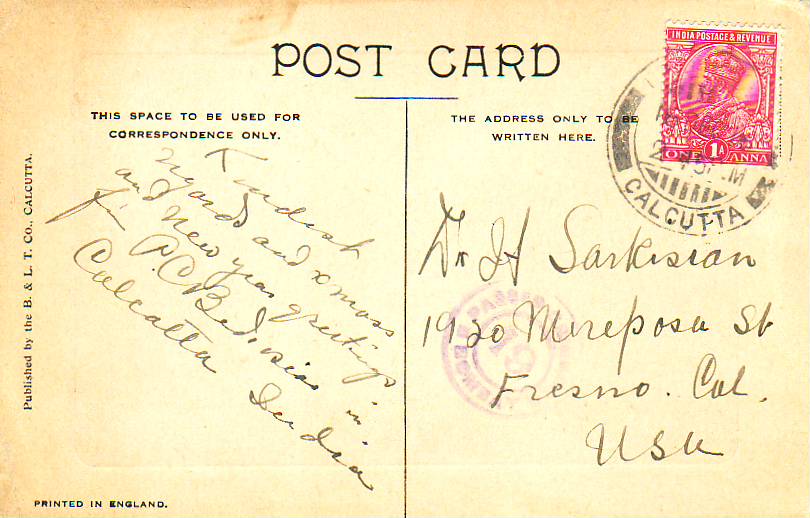 POST CARD
THIS SPACE TO BE USED FOR
CORRESPONDENCE ONLY.
THE ADDRESS ONLY TO BE
WRITTEN HERE.
INDIA POSTAGE & REVENUE
ONE 1A ANNA
CALCUTTA
Kindest
regards and xmass
and New year greetings
P.C.
Calcatta India
Dr H Sarkisian
1920 Mereposa St
Fresno. Cal.
USA
PASSED
Published by the B. & L. T. Co., CALCUTTA.
PRINTED IN ENGLAND.